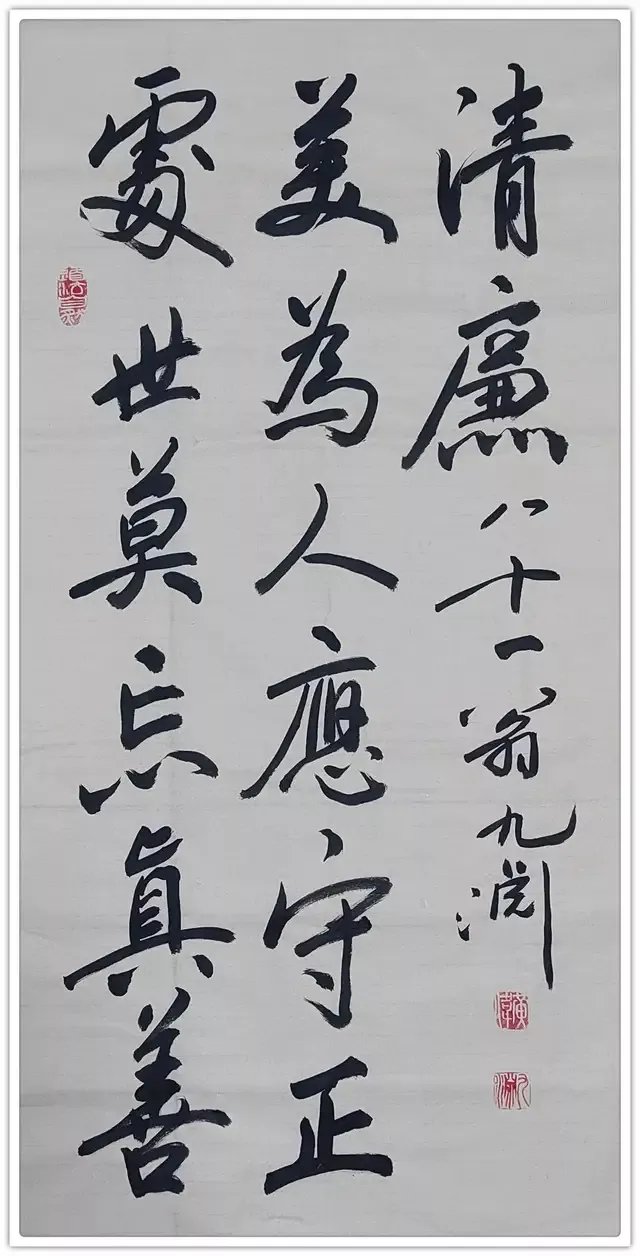 處世莫忘真善
美為人應守正
清廉八十一翁九渊